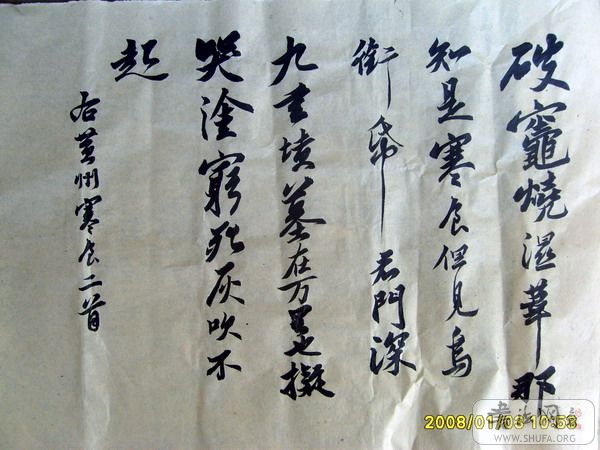 破竈燒濕葦那
知是寒食但見烏
銜帋君門深
九重墳墓在万里也擬
哭塗窮死灰吹不
起
右黃州寒食二首
2008/01/06 10:53
WWW.SHUFA.ORG